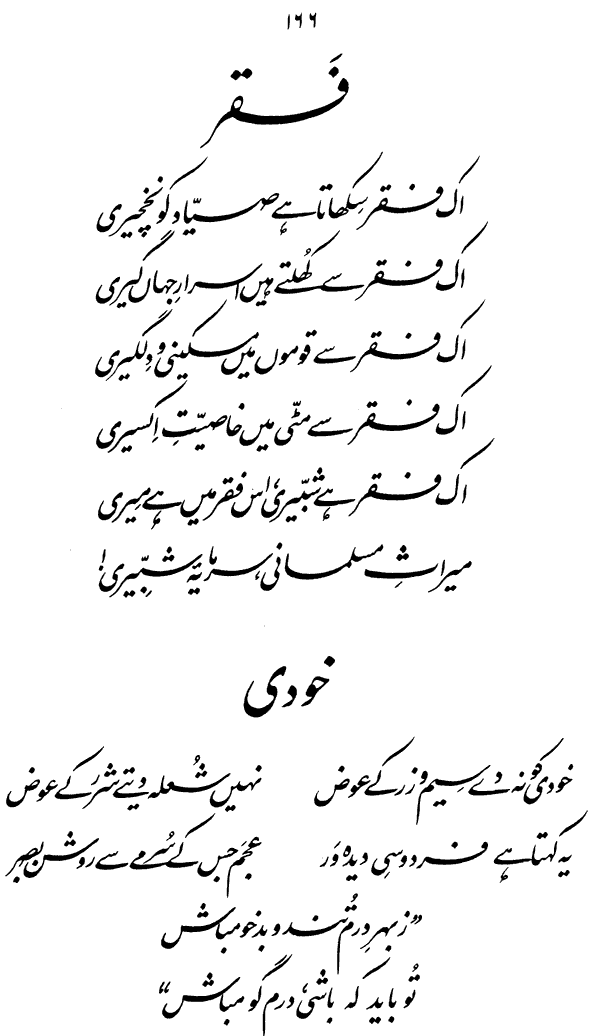 ۱۶۶
فَقر
اک فقر سِکھاتا ہے صیّاد کو نخچیری
اک فقر سے کھُلتے ہیں اسرارِ جہاں گیری
اک فقر سے قوموں میں مسکینی و دِلگیری
اک فقر سے مٹّی میں خاصیّتِ اِکسیری
اک فقر ہے شبّیری، اس فقر میں ہے میری
میراثِ مسلمانی، سرمایۂ شبّیری!
خودی
خودی کو نہ دے سِیم و زر کے عوض
نہیں شُعلہ دیتے شرر کے عوض
یہ کہتا ہے فردوسیِ دیدہ وَر
عجَم جس کے سُرمے سے روشن بصر
”زبہرِ دِرم تُند و بدخو مباش
تُو باید کہ باشی، دِرم گو مباش“